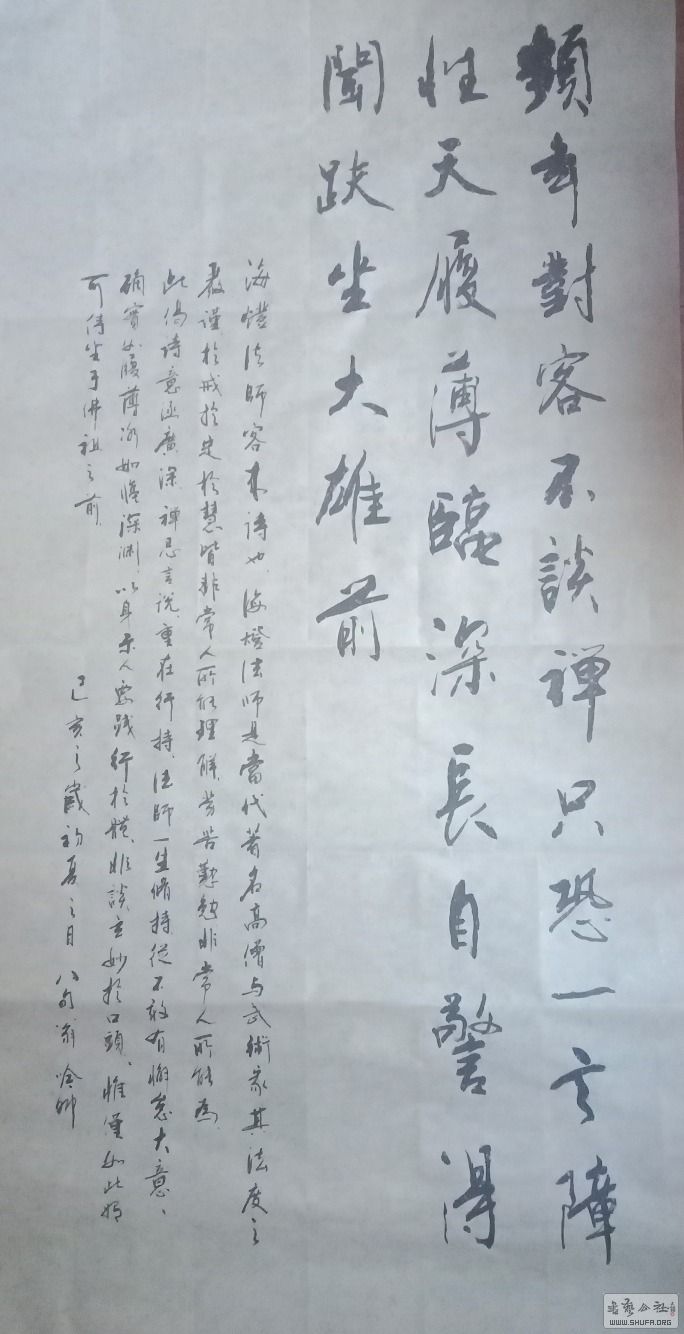 頻年對客不談禪只恐一言障
性天履薄臨深長自警得
聞趺坐大雄前
海燈法師客來詩也、海燈法師是當代著名高僧与武術家其法度之
嚴謹於戒於定於慧皆非常人所能理解、勞苦勤勉非常人所能為、
此偈詩意涵廣深、禅忌言说、重在行持、法師一生修持從不敢有懈怠大意、
确實如履薄冰如臨深渊、以身示人要践行於體、非談玄妙於口頭、惟僅如此
可侍坐于佛祖之前、
己亥之歲初夏之日 八旬翁
書藝公社
WWW.SHUFA.ORG